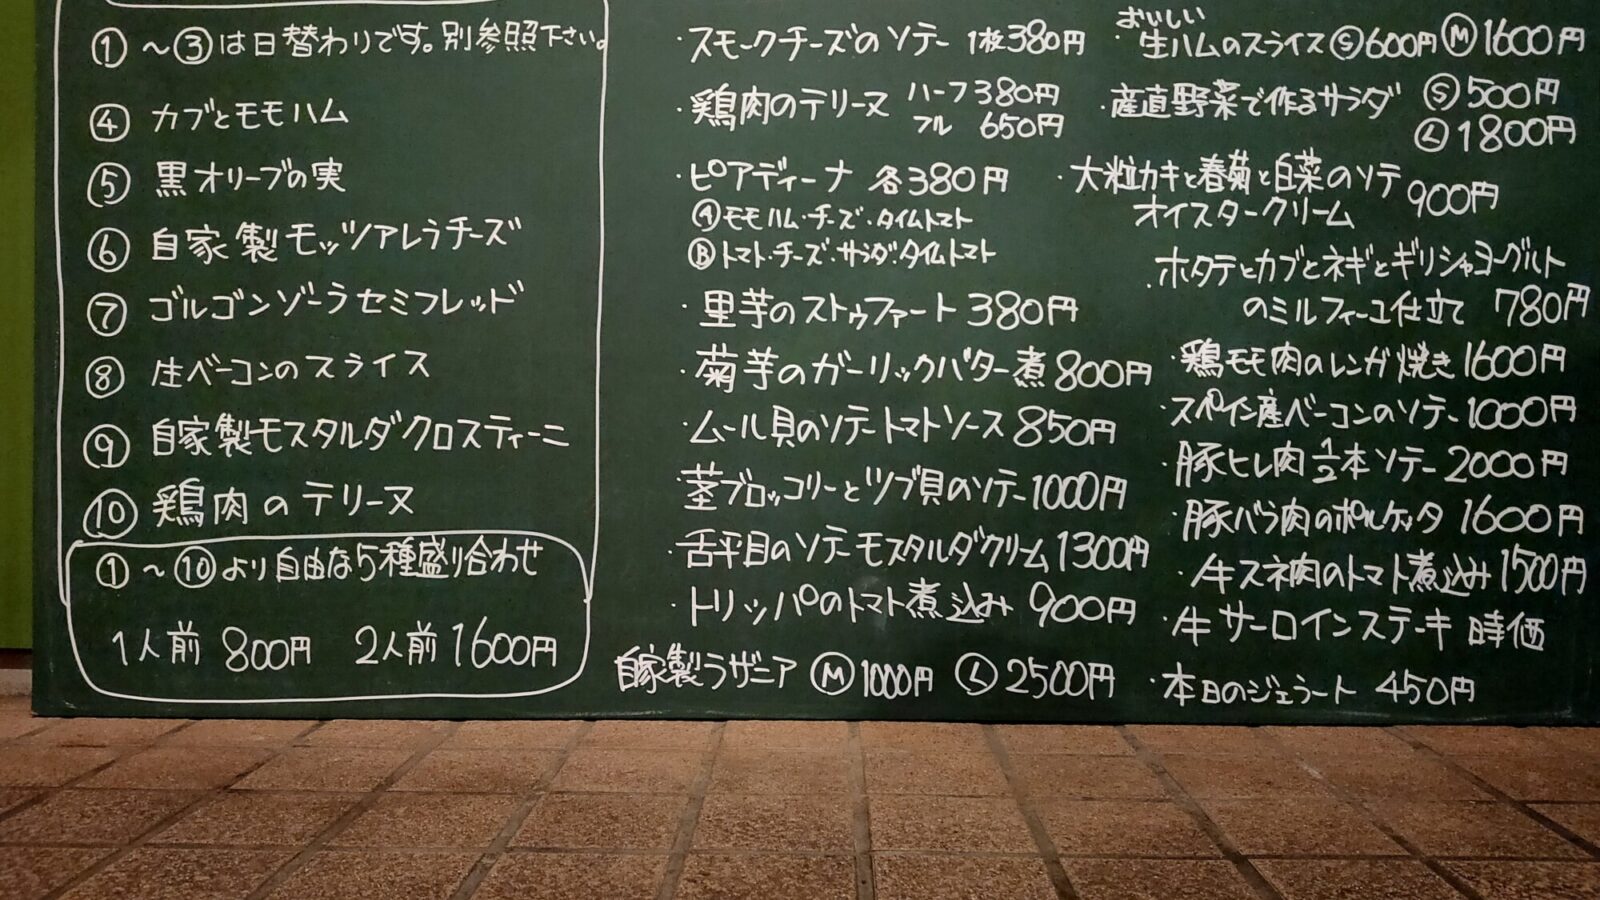 ①～③は日替わりです。別参照下さい。
④ カブとモモハム
⑤ 黒オリーブの実
⑥ 自家製モッツァレラチーズ
⑦ ゴルゴンゾーラセミフレッド
⑧ 生ベーコンのスライス
⑨ 自家製モスタルダクロスティーニ
⑩ 鶏肉のテリーヌ
①～⑩より自由な5種盛り合わせ
1人前 800円 2人前 1600円
・スモークチーズのソテー 1枚380円
・鶏肉のテリーヌ ハーフ 380円
フル 650円
・ピアディーナ 各380円
Ⓐモモハム・チーズ・タイムトマト
Ⓑトマト・チーズ・サラダ・タイムトマト
・里芋のストゥファート 380円
・菊芋のガーリックバター煮 800円
・ムール貝のソテートマトソース 850円
・茎ブロッコリーとツブ貝のソテー 1000円
・舌平目のソテーモスタルダクリーム 1300円
・トリッパのトマト煮込み 900円
自家製ラザニア Ⓜ1000円 Ⓛ2500円
おいしい
・生ハムのスライス Ⓢ600円 Ⓜ1600円
・産直野菜で作るサラダ Ⓢ500円
Ⓛ1800円
・大粒カキと春菊と白菜のソテー 900円
オイスタークリーム
・ホタテとカブとネギとギリシャヨーグルト
のミルフィーユ仕立て 780円
・鶏モモ肉のレンガ焼き 1600円
・スペイン産ベーコンのソテー 1000円
・豚ヒレ肉1/2本ソテー 2000円
・豚バラ肉のポルケッタ 1600円
・牛スネ肉のトマト煮込み 1500円
・牛サーロインステーキ 時価
・本日のジェラート 450円